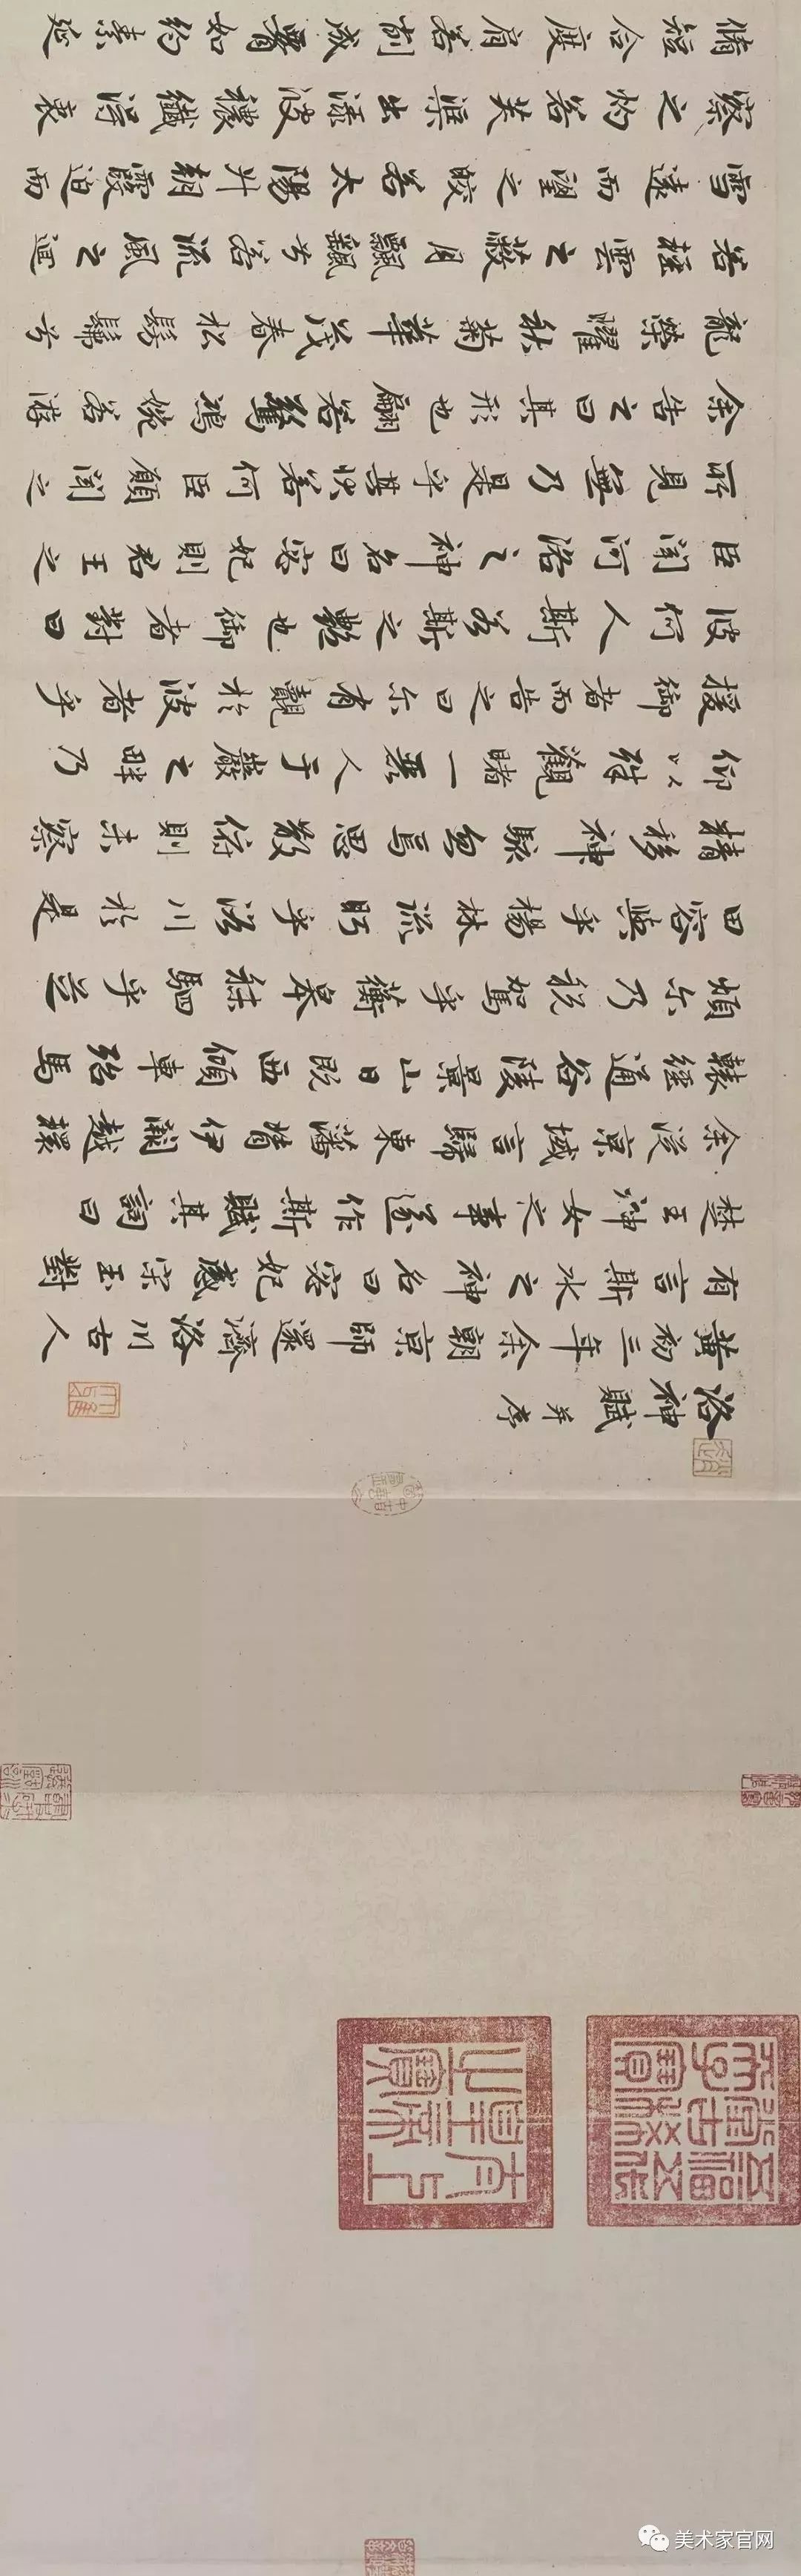 洛神賦 并序
黃初三年余朝京師還濟洛川古人
有言斯水之神名曰宓妃感宋玉對
楚王神女之事遂作斯賦其詞曰
余從京域言歸東藩背伊闕越轘
轅經通谷陵景山日既西傾車殆馬
煩尔乃稅駕乎蘅皋秣駟乎芝
田容與乎楊林流眄乎洛川於是
精移神駭忽焉思散俯則未察
仰以殊觀睹一麗人于巖之畔乃
援御者而告之曰尔有覿於彼者乎
彼何人斯若斯之艷也御者對曰
臣聞河洛之神名曰宓妃則君王之
所見無乃是乎其狀若何臣願聞之
余告之曰其形也翩若驚鴻婉若游
龍榮曜秋菊華茂春松髣髴兮
若輕雲之蔽月飄飖兮若流風之迴
雪遠而望之皎若太陽升朝霞迫而
察之灼若芙渠出淥波穠纖得衷
脩短合度肩若削成腰如約素延
五福五代堂古稀天子寶
太上皇帝之寶
美术家官网